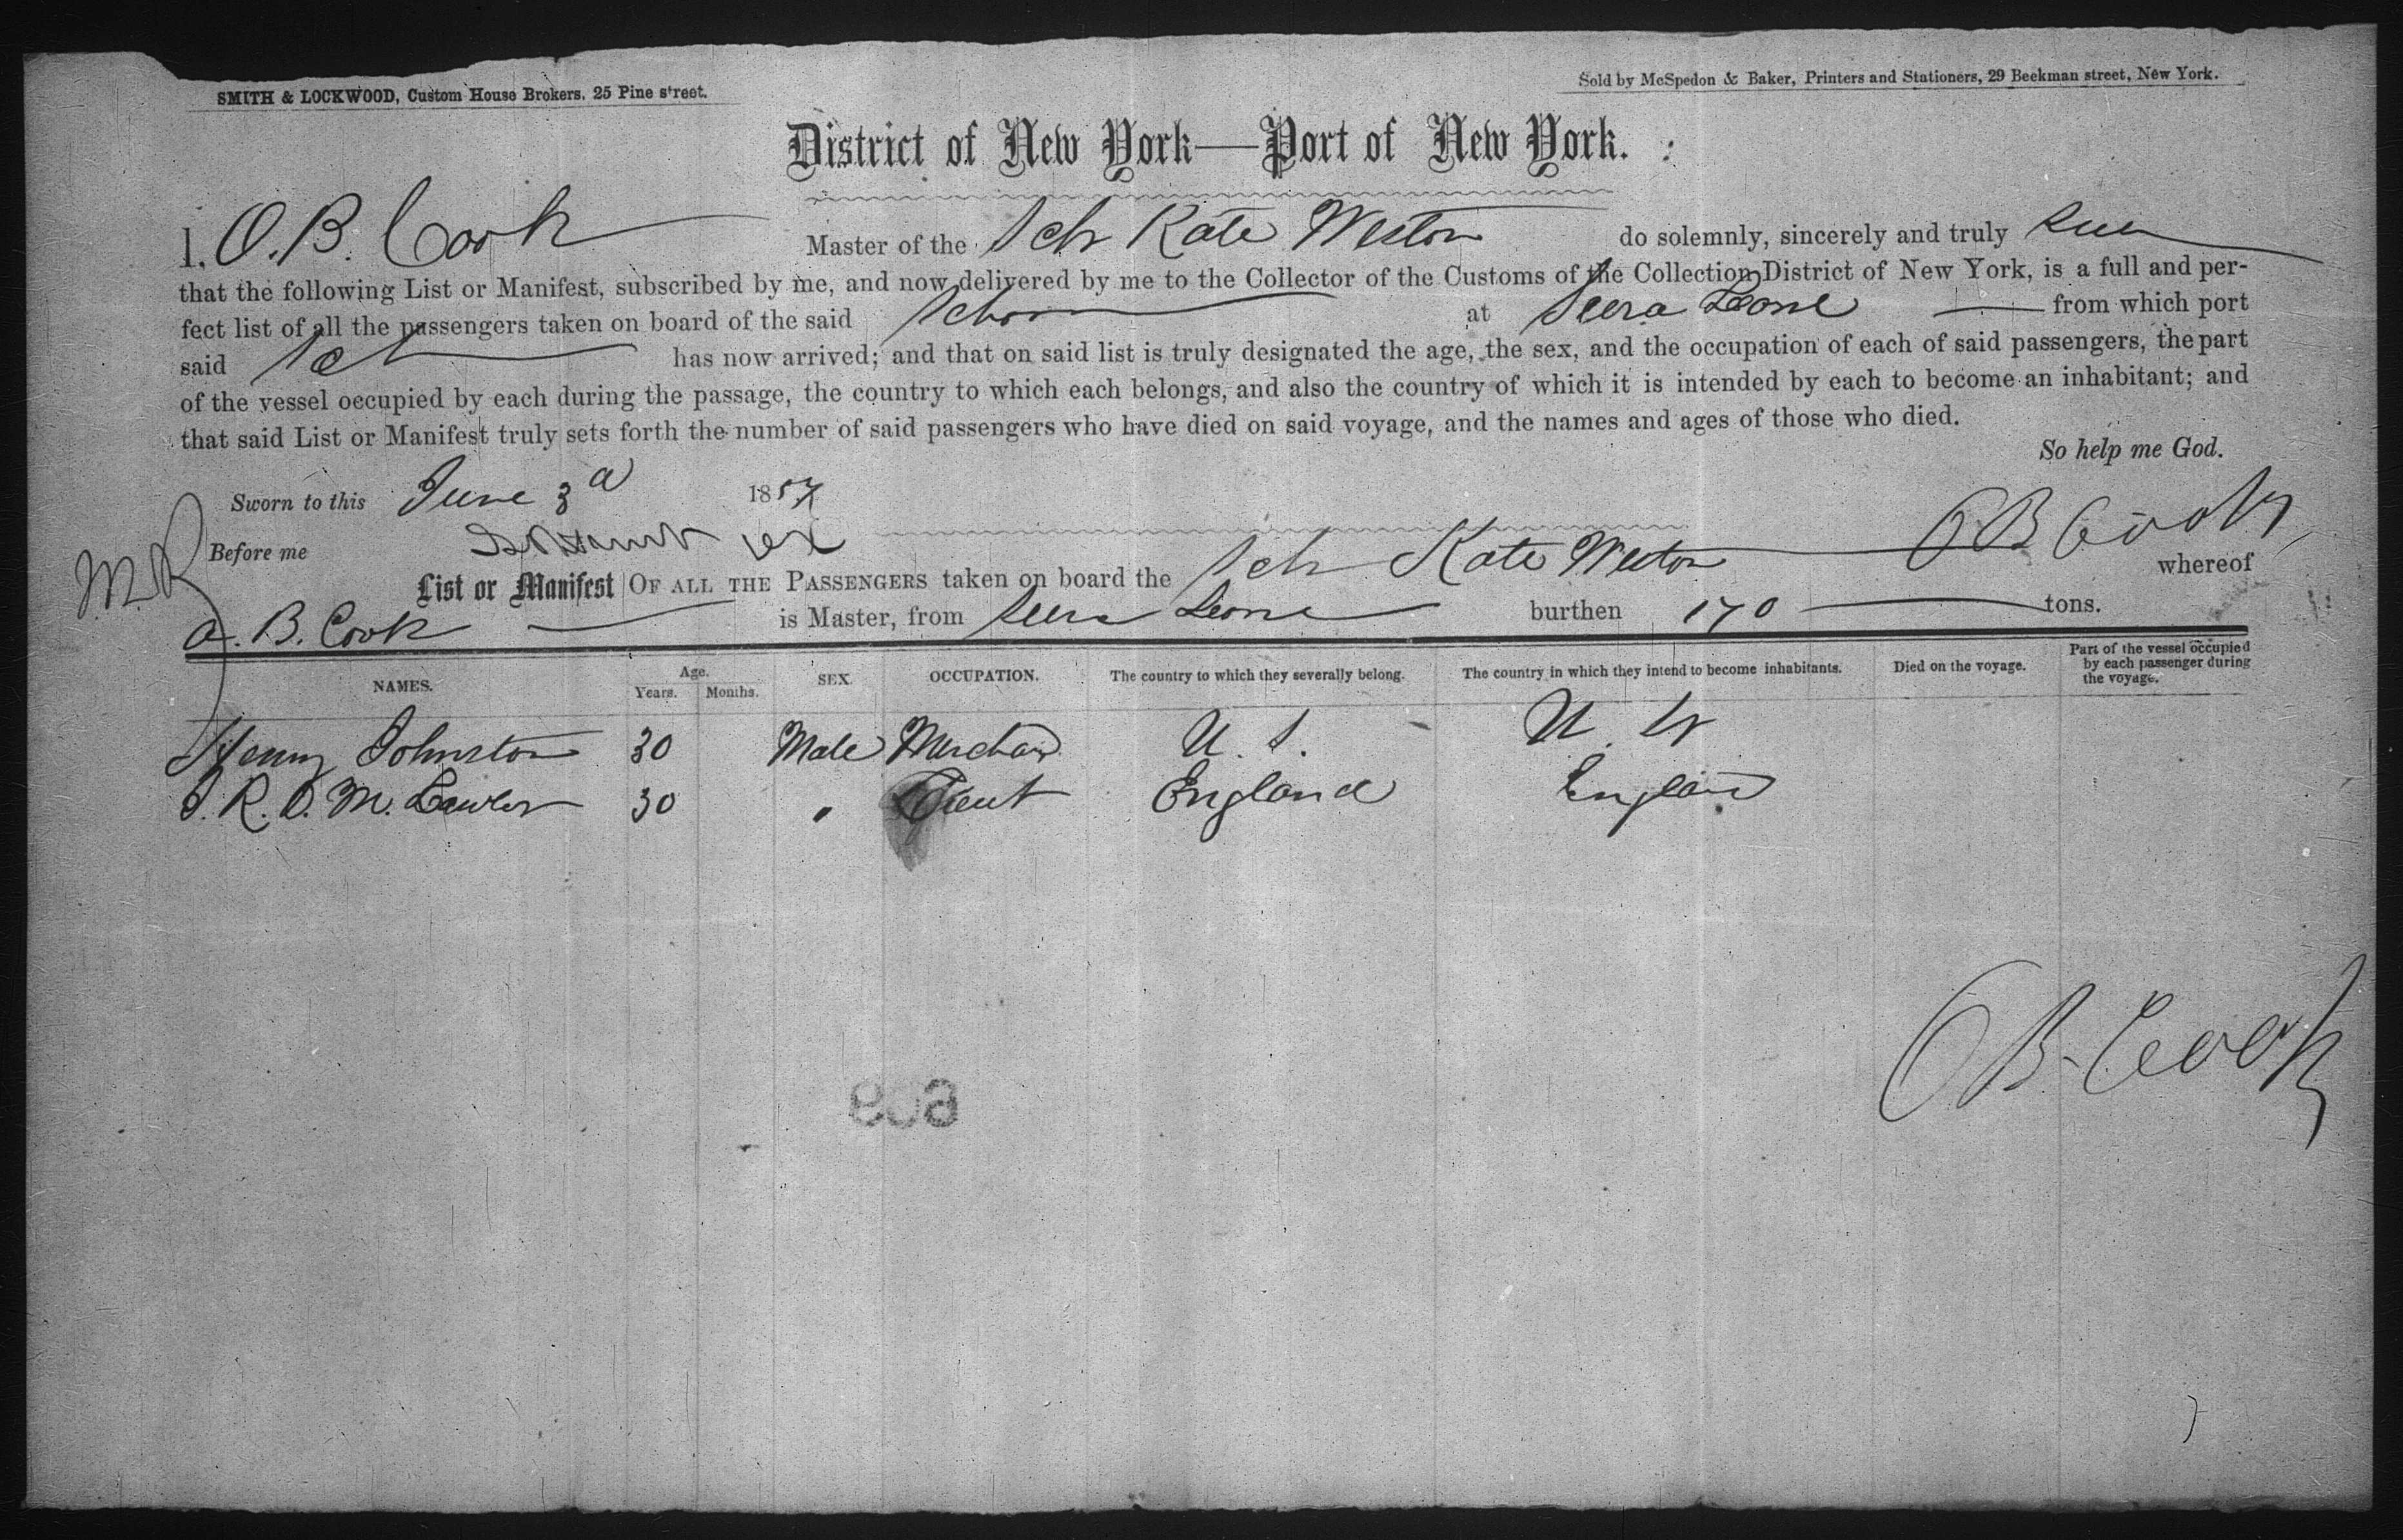 SMITH & LOCKWOOD, Custom House Brokers, 25 Pine street.
Sold by McSpedon & Baker, Printers and Stationers, 29 Beekman street, New York.
District of New York—Port of New York.
I, O. B. Cook Master of the Sch Kate Weston do solemnly, sincerely and truly
that the following List or Manifest, subscribed by me, and now delivered by me to the Collector of the Customs of the Collection District of New York, is a full and per-
fect list of all the passengers taken on board of the said Schr at Seera Leone from which port
said Sch has now arrived; and that on said list is truly designated the age, the sex, and the occupation of each of said passengers, the part
of the vessel occupied by each during the passage, the country to which each belongs, and also the country of which it is intended by each to become an inhabitant; and
that said List or Manifest truly sets forth the number of said passengers who have died on said voyage, and the names and ages of those who died.
So help me God.
Sworn to this June 3d 1857
Before me
O B Cook
List or Manifest OF ALL THE PASSENGERS taken on board the Sch Kate Weston whereof
O. B. Cook is Master, from Seera Leone burthen 170 tons.
NAMES. Age. Years. Months. SEX. OCCUPATION. The country to which they severally belong. The country in which they intend to become inhabitants. Died on the voyage. Part of the vessel occupied by each passenger during the voyage.
Henry Johnston 30 Male Merchant U. S.
30 " England England
O B Cook